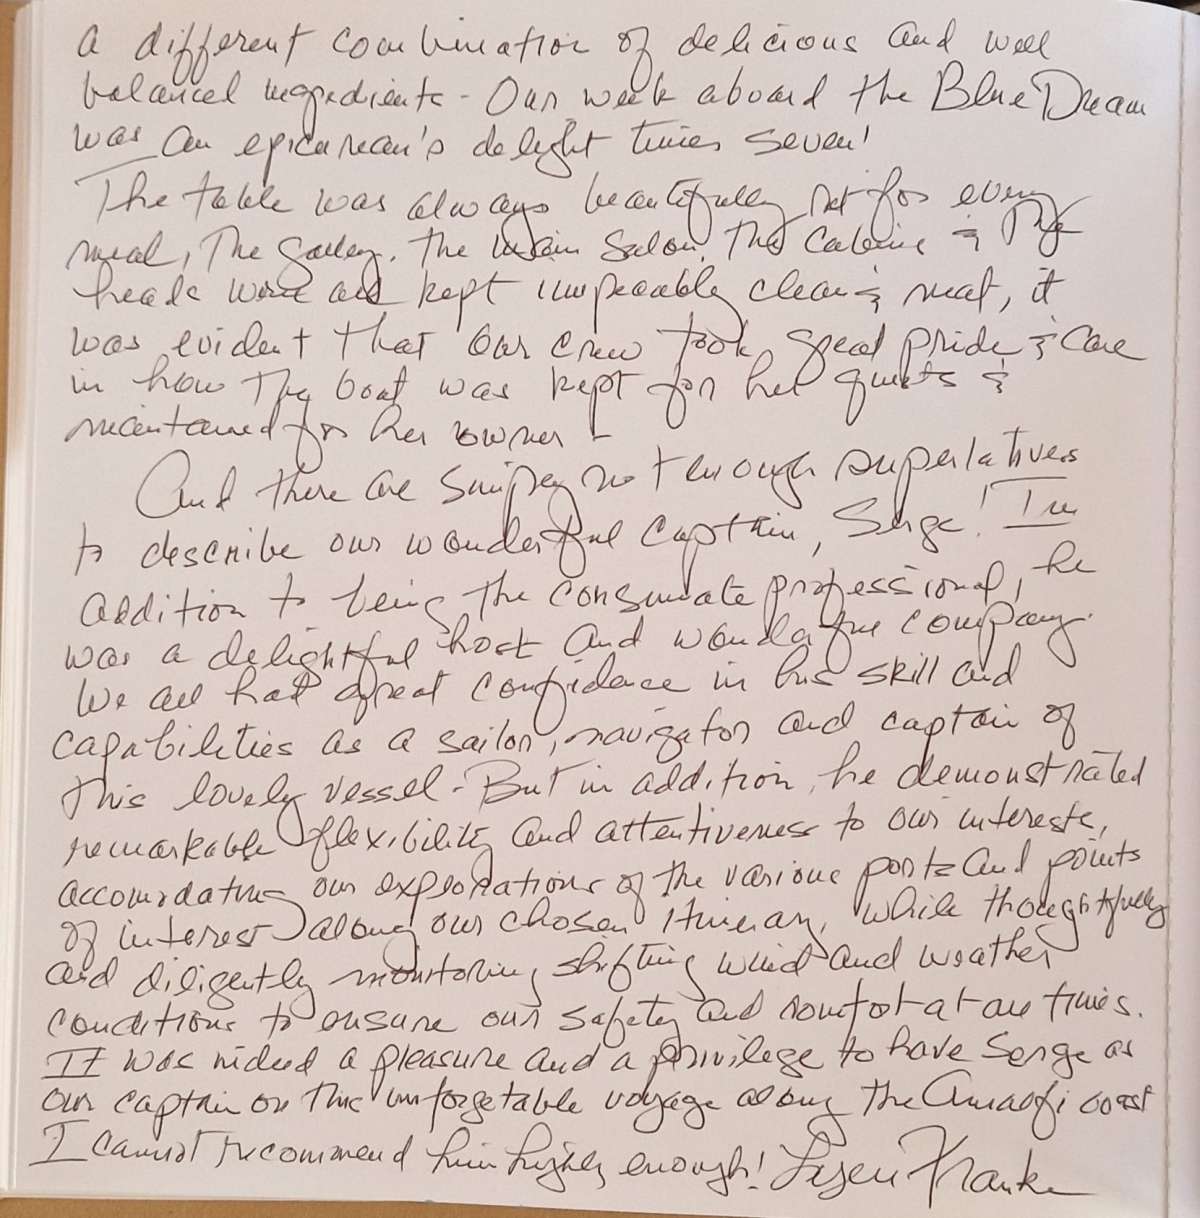 a different combination of delicious and well
balanced ingredients - Our week aboard the Blue Dream
was an epicurean's delight times seven!
The table was always beautifully set for every
meal, The Galley, the main salon, The cabins & The
heads were all kept impeccably clean & neat, it
was evident that our crew took great pride & care
in how The boat was kept for her guests &
maintained for her owner -
And there are simply not enough superlatives
to describe our wonderful Captain, Serge! In
addition to being the consumate professional, he
was a delightful host and wonderful company.
We all had great confidence in his skill and
capabilities as a sailor, navigator and captain of
this lovely vessel - But in addition, he demonstrated
remarkable flexibility and attentiveness to our interests,
accomodating our explorations of the various ports and points
of interest along our chosen itinerary, while thoughtfully
and diligently monitoring shifting wind and weather
conditions to ensure our safety and comfort at all times.
It was indeed a pleasure and a privilege to have Serge as
our captain on this unforgetable voyage along the Amalfi coast
I cannot recommend him highly enough! Franke